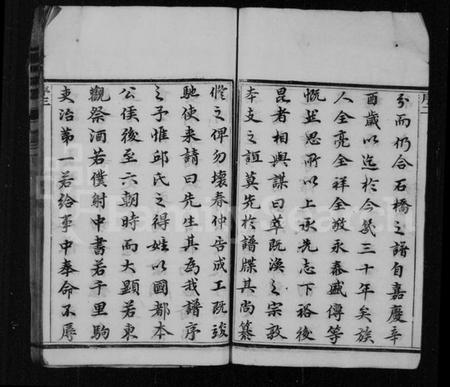 序二
分而仍合石橋之譜自嘉慶辛
酉歲以迄於今幾三十年矣族
人全亮全祥全放永泰盛傳等
慨然思所以上承先志下裕後
昆者相與謀曰萃既渙之宗敦
本支之誼莫先於譜牒其尚纂
修之俾勿壞春仲告成工既竣
馳使來請曰先生其為我譜序
之予惟邱氏之得姓以國都本
公侯後至六朝時而大顯若東
觀祭酒若僕射中書若千里駒
吏治第一若給事中奉命不辱
序三